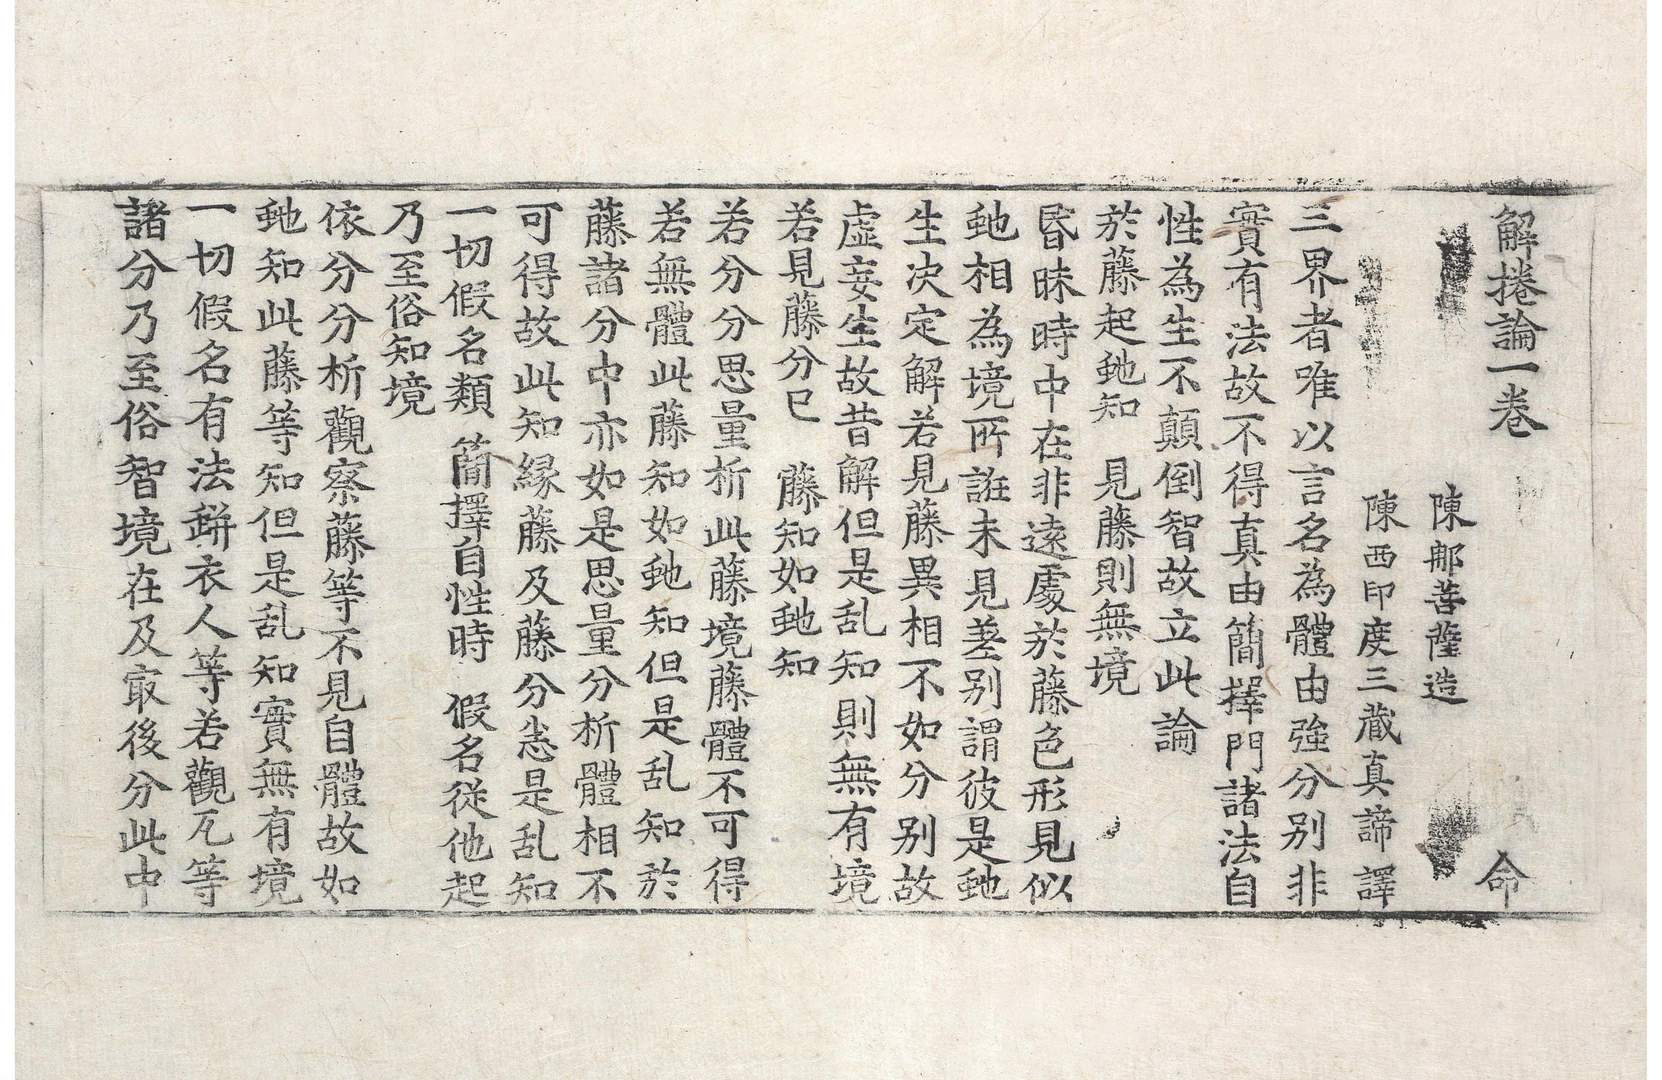 解捲論一卷 命
陳那菩薩造
陳西印度三藏真諦譯
三界者唯以言名為體由強分別非
實有法故不得真由簡擇門諸法自
性為生不顛倒智故立此論
於藤起虵知 見藤則無境
昏昧時中在非遠處於藤色形見似
虵相為境所誑未見差别謂彼是虵
生决定解若見藤異相不如分别故
虚妄生故昔解但是乱知則無有境
若見藤分已 藤知如虵知
若分分思量析此藤境藤體不可得
若無體此藤知如虵知但是乱知於
藤諸分中亦如是思量分析體相不
可得故此知縁藤及藤分悉是乱知
一切假名類 簡擇自性時 假名従他起
乃至俗知境
依分分析觀察藤等不見自體故如
虵知此藤等知但是乱知實無有境
一切假名有法缾衣人等若觀瓦等
諸分乃至俗智境在及㝡後分此中